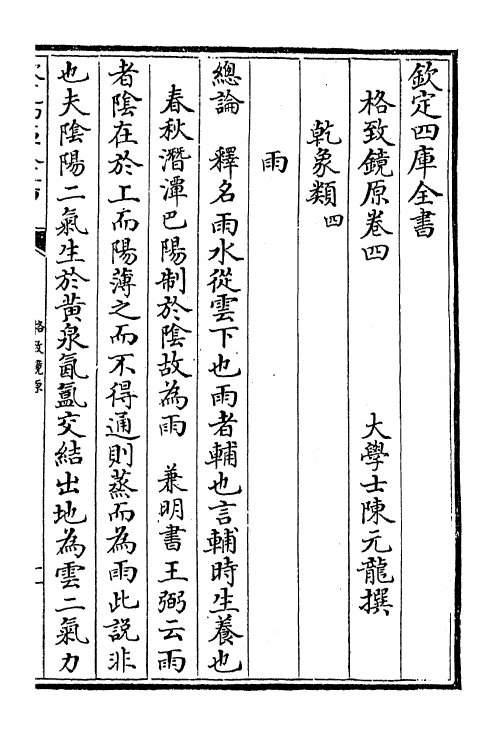 欽定四庫全書
格致鏡原卷四
大學士陳元龍撰
乾象類四
雨
總論　釋名雨水從雲下也雨者輔也言輔時生養也
春秋潛潭巴陽制於陰故為雨　兼明書王弼云雨
者陰在於上而陽薄之而不得通則蒸而為雨此說非
也夫陰陽二氣生於黃泉氤氳交結出地為雲二氣力
格致鏡原